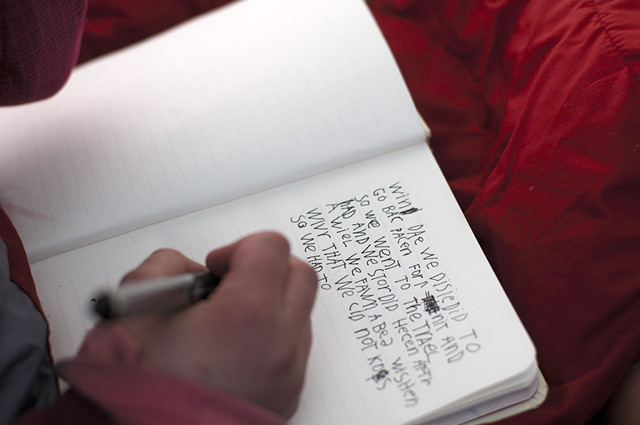 DAE WE DISIEDID TO
GO BAC PACEN FOR A NIT AND
SO WE WENT TO THE TRAEL
HAD AND WE STORDID HECEN AFTR
A WIEL WE FAWND A WISHEN
THAT WE CID NOT KROS
SO WE HAD TO